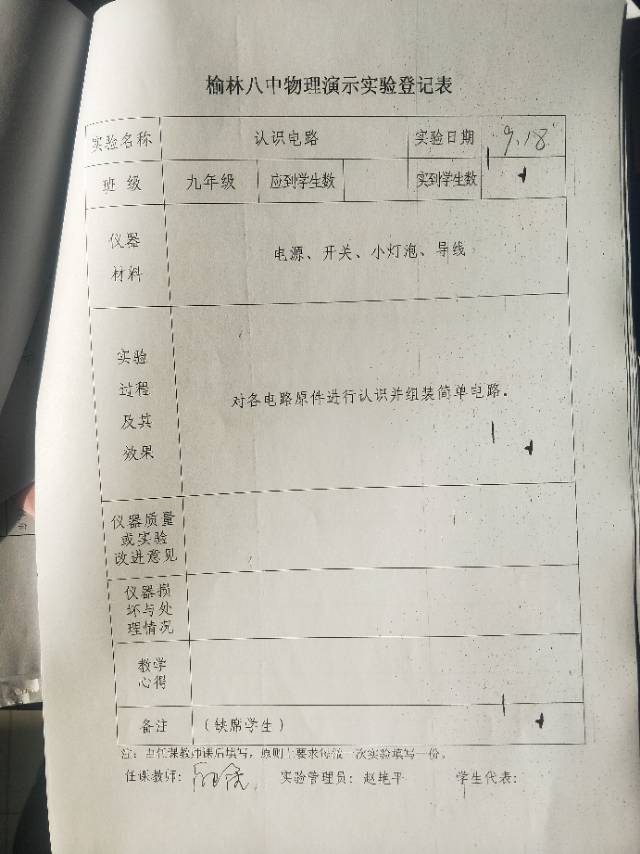 榆林八中物理演示实验登记表
实验名称 认识电路 实验日期 9.18
班 级 九年级 应到学生数 实到学生数
仪器
材料
电源、开关、小灯泡、导线
实验
过程
及其
效果
对各电路原件进行认识并组装简单电路.
仪器质量
或实验
改进意见
仪器损
坏与处
理情况
教学
心得
备注 (缺席学生)
注: 由任课教师课后填写, 原则上要求每做一次实验填写一份.
任课教师: 实验管理员: 赵艳平 学生代表: